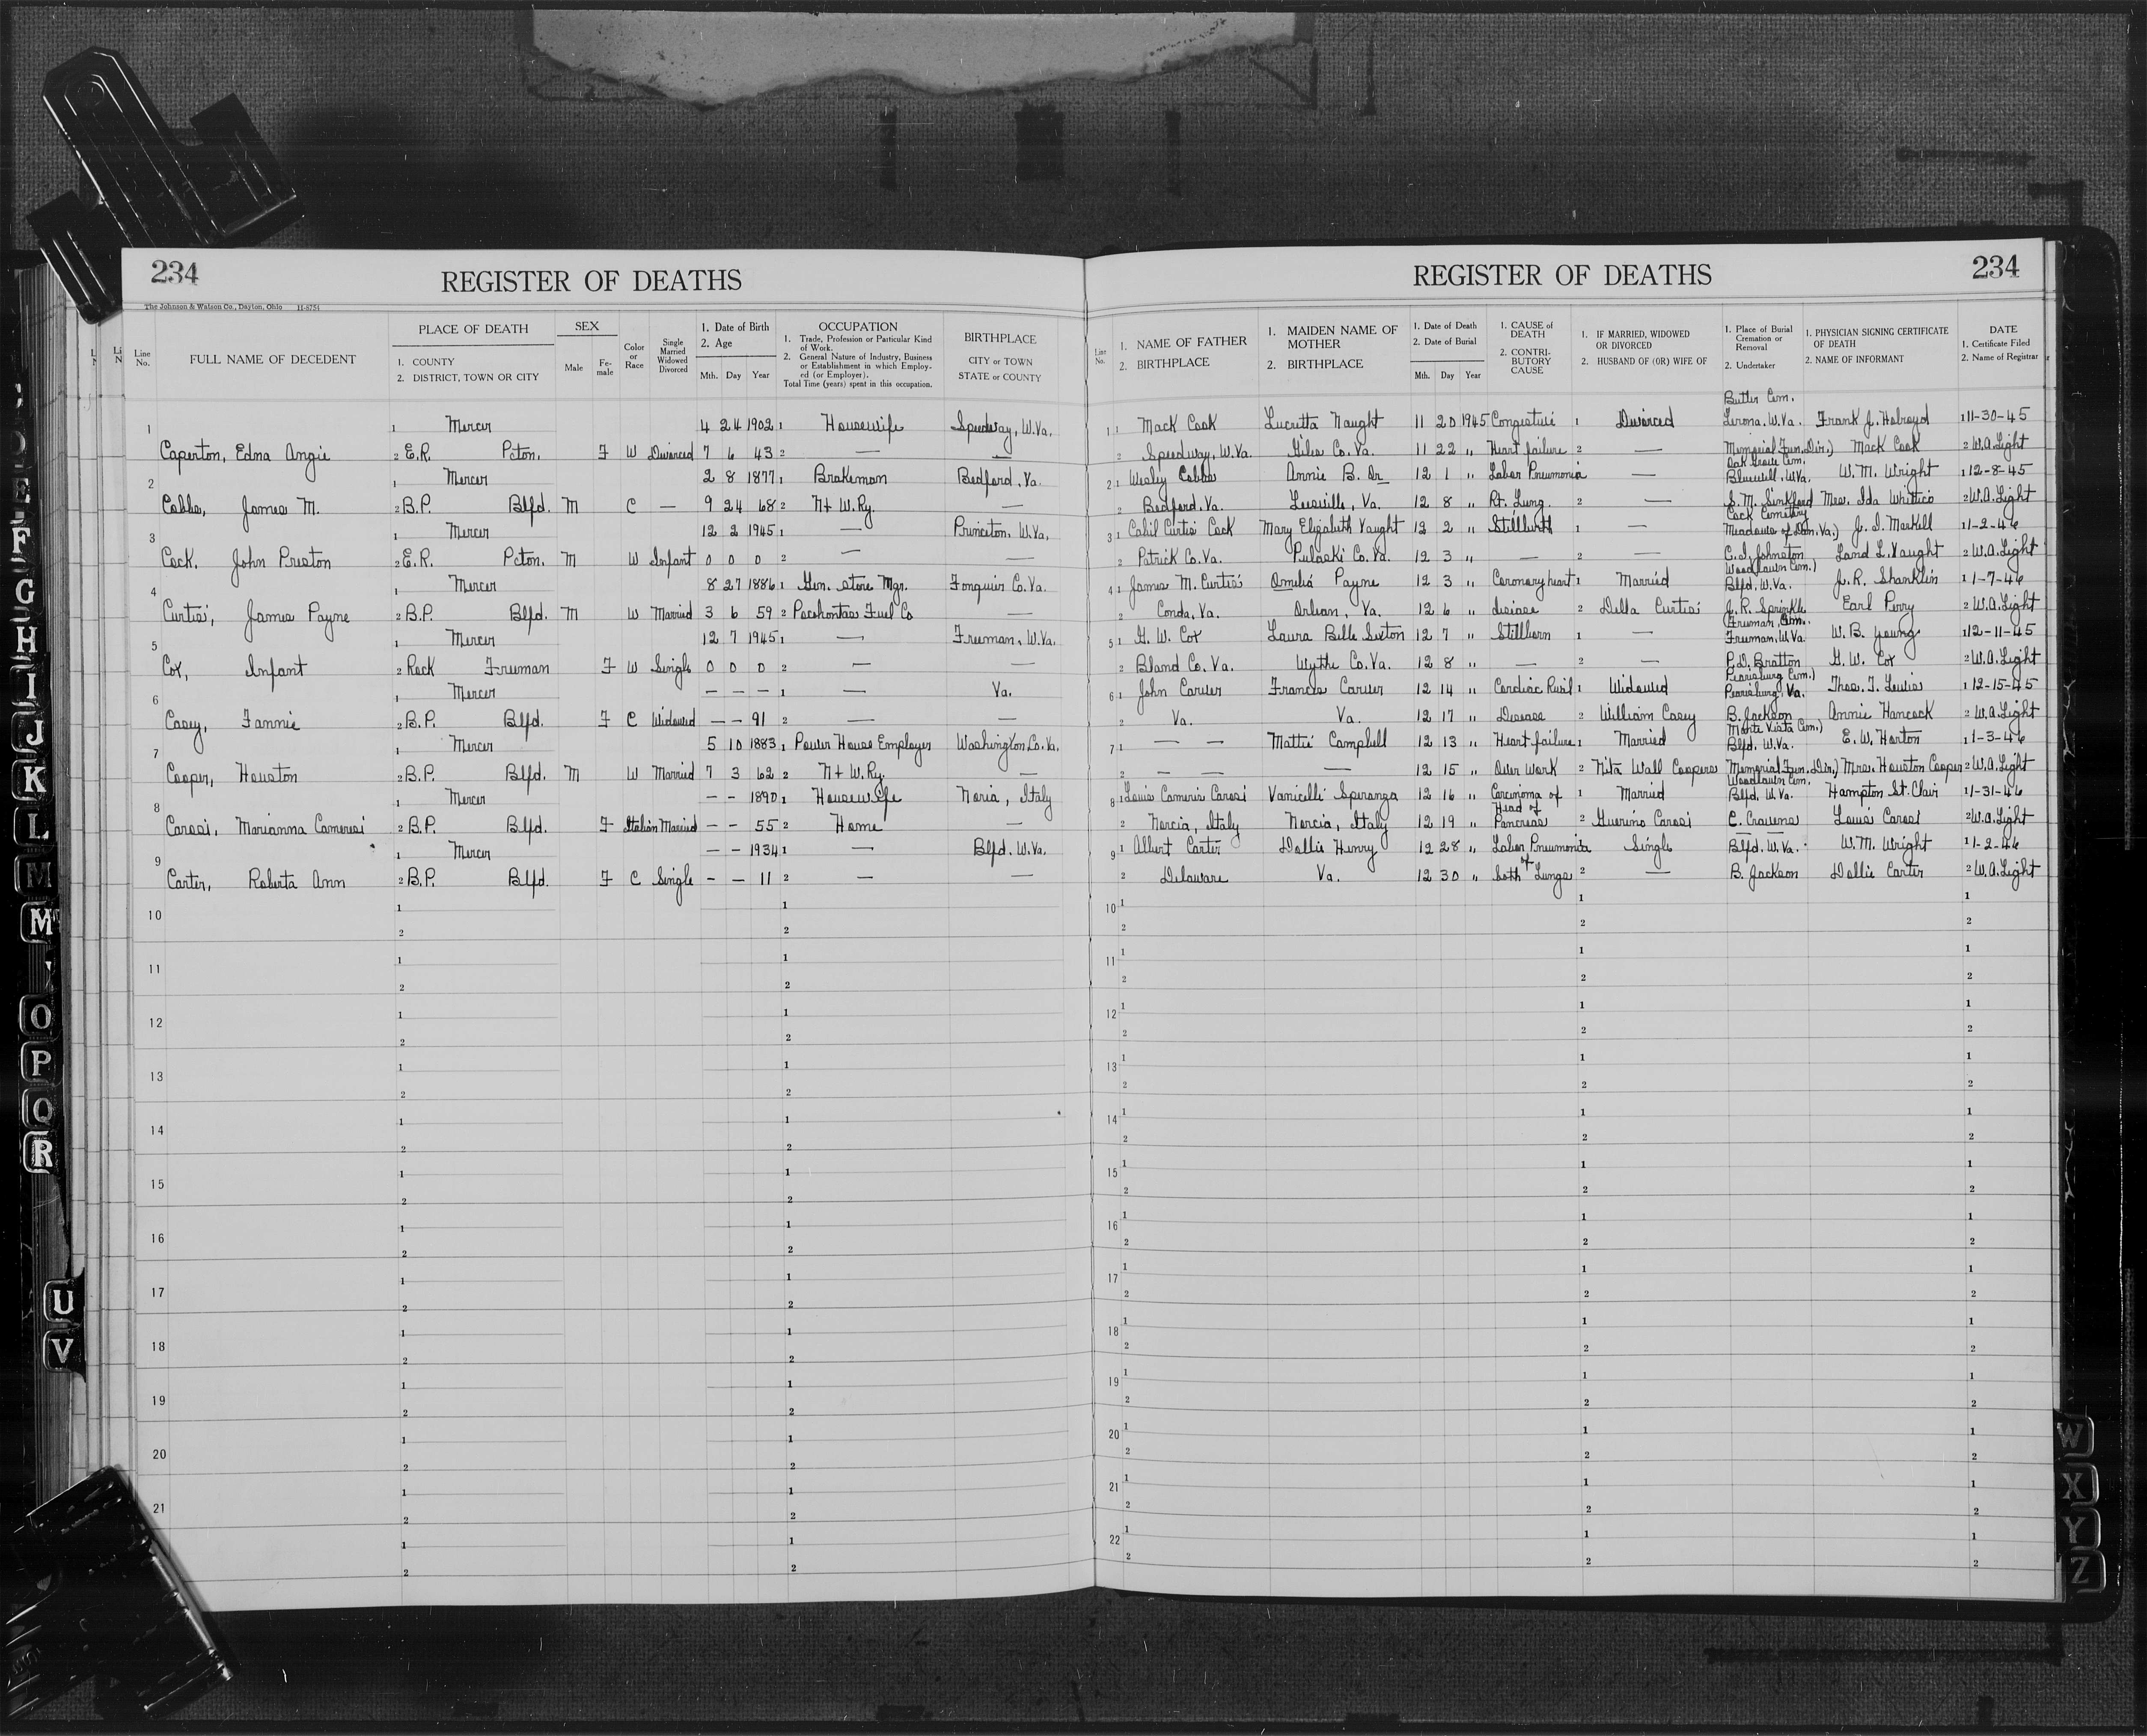 234
REGISTER OF DEATHS
The Johnson & Watson Co., Dayton, Ohio 11-8754
Line No.
FULL NAME OF DECEDENT
PLACE OF DEATH
1. COUNTY
2. DISTRICT, TOWN OR CITY
SEX
Male
Female
Color or Race
Single Married Widowed Divorced
1. Date of Birth
2. Age
Mth. Day Year
OCCUPATION
1. Trade, Profession or Particular Kind of Work.
2. General Nature of Industry, Business or Establishment in which Employed (or Employer).
Total Time (years) spent in this occupation.
BIRTHPLACE
CITY or TOWN
STATE or COUNTY
1 1 Mercer 4 24 1902 1 Housewife Speedway, W.Va.
Caperton, Edna Angie 2 E.R. Pcton. F W Divorced 7 6 43 2 — —
2 1 Mercer 2 8 1877 1 Brakeman Bedford, Va.
Cobbs, James M. 2 B.P. Blfd. M C — 9 24 68 2 N+W.Ry. —
3 1 Mercer 12 2 1945 1 — Princeton, W.Va.
Cock, John Preston 2 E.R. Pcton. M W Infant 0 0 0 2 — —
4 1 Mercer 8 27 1886 1 Gen. Store Mgr. Fonquier Co. Va.
Curtis, James Payne 2 B.P. Blfd. M W Married 3 6 59 2 Pocahontas Fuel Co —
5 1 Mercer 12 7 1945 1 — Freeman, W.Va.
Cox, Infant 2 Rock Freeman F W Single 0 0 0 2 — —
6 1 Mercer — — — 1 — Va.
Casey, Fannie 2 B.P. Blfd. F C Widowed — — 91 2 — —
7 1 Mercer 5 10 1883 1 Power House Employee Washington Co. Va.
Cooper, Houston 2 B.P. Blfd. M W Married 7 3 62 2 N+W.Ry. —
8 1 Mercer — — 1890 1 Housewife Noria, Italy
Carosi, Marianna Cameresi 2 B.P. Blfd. F Italian Married — — 55 2 Home —
9 1 Mercer — — 1934 1 — Blfd. W.Va.
Carter, Roberta Ann 2 B.P. Blfd. F C Single — — 11 2 — —
10 1 1
2 2
11 1 1
2 2
12 1 1
2 2
13 1 1
2 2
14 1 1
2 2
15 1 1
2 2
16 1 1
2 2
17 1 1
2 2
18 1 1
2 2
19 1 1
2 2
20 1 1
2 2
21 1 1
2 2
1 1
2 2
REGISTER OF DEATHS
234
Line No.
1. NAME OF FATHER
2. BIRTHPLACE
1. MAIDEN NAME OF MOTHER
2. BIRTHPLACE
1. Date of Death
2. Date of Burial
Mth. Day Year
1. CAUSE of DEATH
2. CONTRIBUTORY CAUSE
1. IF MARRIED, WIDOWED OR DIVORCED
2. HUSBAND OF (OR) WIFE OF
1. Place of Burial Cremation or Removal
2. Undertaker
1. PHYSICIAN SIGNING CERTIFICATE OF DEATH
2. NAME OF INFORMANT
DATE
1. Certificate Filed
2. Name of Registrar
Butler Cem.
1 1 Mack Cook Lucretta Naught 11 20 1945 Congestive 1 Divorced Lerona, W.Va. Frank J. Holroyd 1 11-30-45
2 Speedway, W.Va. Giles Co. Va. 11 22 " Heart failure 2 — Memorial Fun. Dir.) Mack Cook 2 W.A. Light
Oak Grove Cem.
2 1 Wesley Cobbs Annie B. Or 12 1 " Lobar Pneumonia — Bluewell, W.Va. W.M. Wright 1 12-8-45
2 Bedford, Va. Leesville, Va. 12 8 " Rt. Lung. 2 — S.M. Sinkford Mrs. Ida Whittico 2 W.A. Light
Cock Cemetery
3 1 Cahil Curtis Cock Mary Elizabeth Vaught 12 2 " Stillbirth 1 — Meadows of Dan, Va.) J.I. Markell 1 1-2-46
2 Patrick Co. Va. Pulaski Co. Va. 12 3 " — 2 — C.I. Johnston Land L. Vaught 2 W.A. Light
Woodlawn Cem.)
4 1 James M. Curtis Amelia Payne 12 3 " Coronary heart 1 Married Blfd. W.Va. J.R. Shanklin 1 1-7-46
2 Conda, Va. Orlean, Va. 12 6 " disease 2 Della Curtis J.R. Sprinkle Earl Perry 2 W.A. Light
Freeman Cem.
5 1 G.W. Cox Laura Belle Sexton 12 7 " Stillborn 1 — Freeman, W.Va. W.B. Young 1 12-11-45
2 Bland Co. Va. Wythe Co. Va. 12 8 " — 2 — P.D. Bratton G.W. Cox 2 W.A. Light
Pearisburg Cem.)
6 1 John Carver Frances Carver 12 14 " Cardiac Renal 1 Widowed Pearisburg, Va. Thos. T. Lewis 1 12-15-45
2 Va. Va. 12 17 " Disease 2 William Casey B. Jackson Annie Hancock 2 W.A. Light
Monte Vista Cem.)
7 1 — — Mattie Campbell 12 13 " Heart failure 1 Married Blfd. W.Va. E.W. Horton 1 1-3-46
2 — — — 12 15 " Over Work 2 Nita Wall Coopers Memorial Fun. Dir.) Mrs. Houston Cooper 2 W.A. Light
Woodlawn Cem.
8 1 Louis Cameris Carosi Vanicelli Speranza 12 16 " Carcinoma of Head of 1 Married Blfd. W.Va. Hampton St. Clair 1 1-31-46
2 Norcia, Italy Norcia, Italy 12 19 " Pancreas 2 Guerino Carosi C. Cravens Louis Carosi 2 W.A. Light
9 1 Albert Carter Dollie Henry 12 28 " Lobar Pneumonia of Single Blfd. W.Va. W.M. Wright 1 1-2-46
2 Delaware Va. 12 30 " both Lungs 2 — B. Jackson Dollie Carter 2 W.A. Light
10 1 1 1
2 2 2
11 1 1 1
2 2 2
12 1 1 1
2 2 2
13 1 1 1
2 2 2
14 1 1 1
2 2 2
15 1 1 1
2 2 2
16 1 1 1
2 2 2
17 1 1 1
2 2 2
18 1 1 1
2 2 2
19 1 1 1
2 2 2
20 1 1 1
2 2 2
21 1 1 1
2 2 2
22 1 1 1
2 2 2
D
E
F
G
H
I
J
K
L
M
M
O
P
Q
R
U
V
W
X
Y
Z